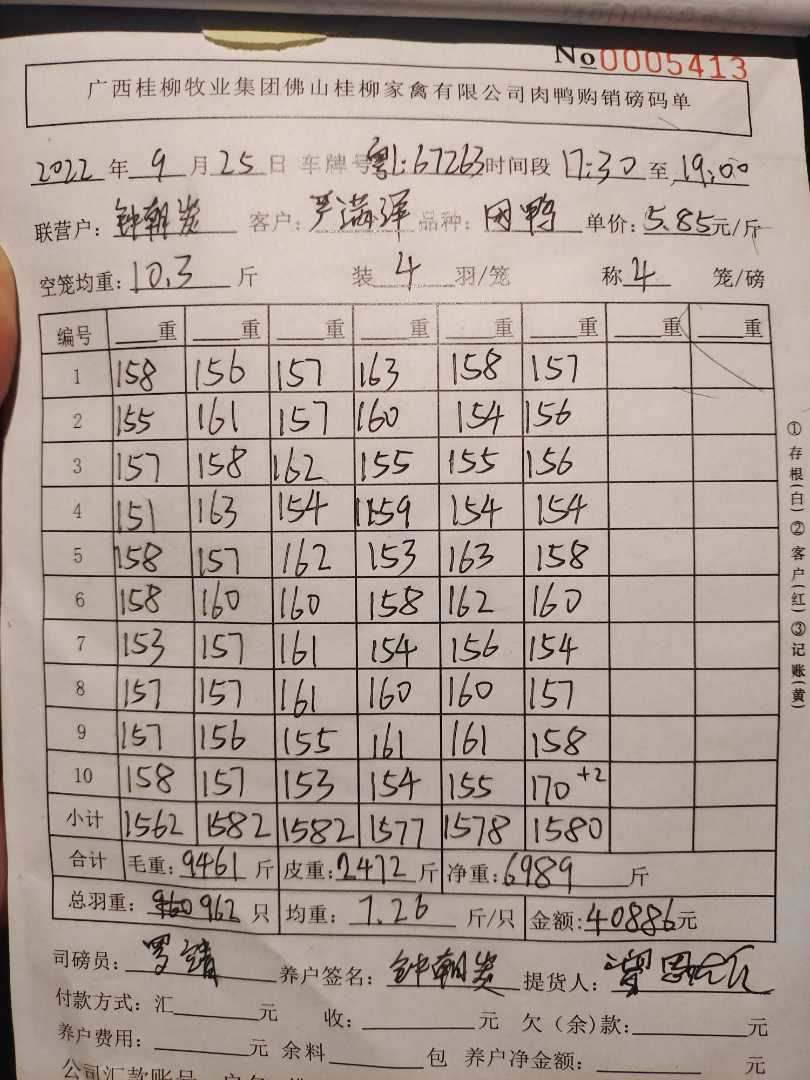 No0005413
广西桂柳牧业集团佛山桂柳家禽有限公司肉鸭购销磅码单
2022年9月25日 车牌号粤L:67263时间段17:30至19:00
联营户:钟朝炭 客户:严满洋 品种:肉鸭 单价:5.85元/斤
空笼均重:10.3斤 装4羽/笼 称4笼/磅
编号 重 重 重 重 重 重 重 重
1 158 156 157 163 158 157
2 155 161 157 160 154 156
3 157 158 162 155 155 156
4 151 163 154 159 154 154
5 158 157 162 153 163 158
6 158 160 160 158 162 160
7 153 157 161 154 156 154
8 157 157 161 160 160 157
9 157 156 155 161 161 158
10 158 157 153 154 155 170+2
小计 1562 1582 1582 1577 1578 1580
合计 毛重:9461斤 皮重:2472斤 净重:6989斤
总羽重:962只 均重:7.26斤/只 金额:40886元
司磅员: 养户签名: 提货人:
付款方式:汇 元 收: 元 欠(余)款: 元
养户费用: 元 余料 包 养户净金额: 元
公司汇款账号
①存根(白)②客户(红)③记账(黄)